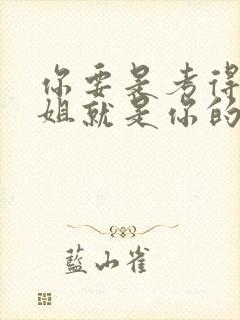 你要是考得
姐就是你的
藍山雀